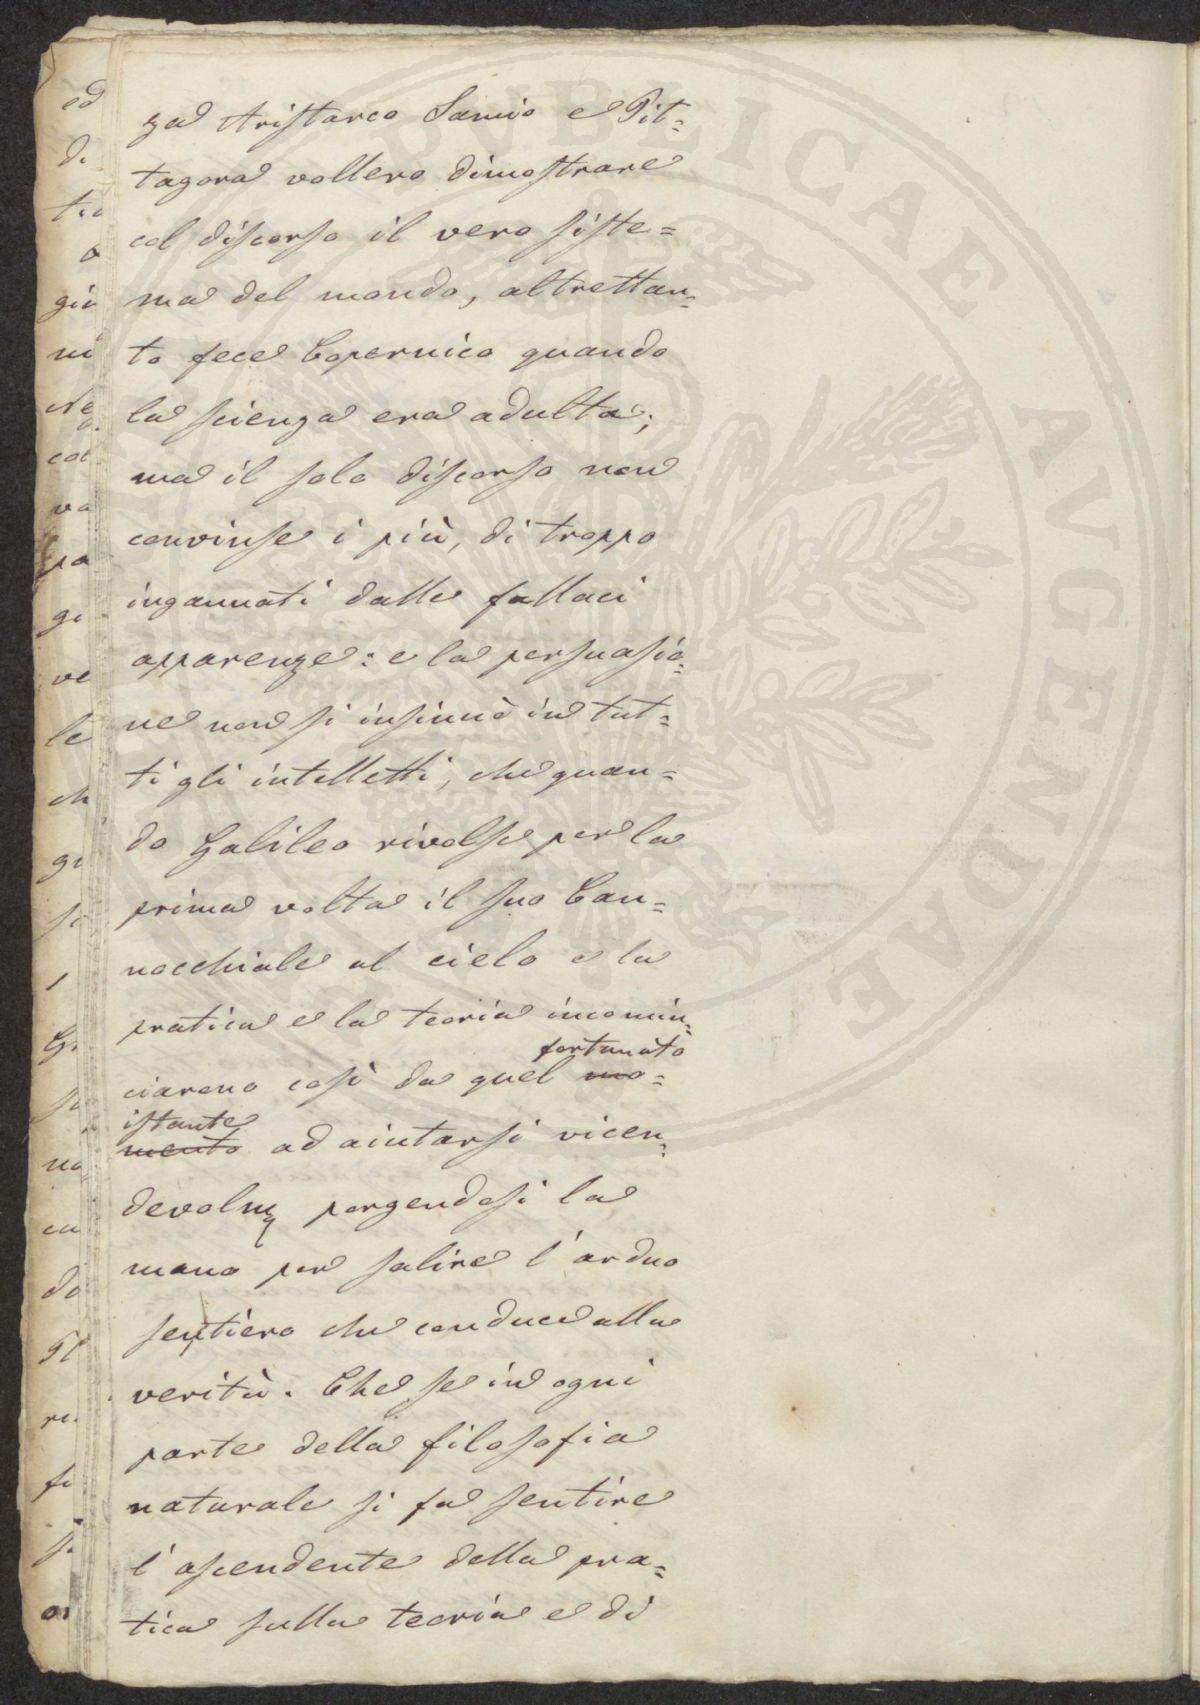 za Aristarco Samio e Pit=
tagora vollero dimostrare
col discorso il vero siste=
ma del mondo, altrettan=
to fece Copernico quando
la scienza era adulta;
ma il solo discorso non
convinse i più, di troppo
ingannati dalle fallaci
apparenze: e la persuasio=
ne non si insinuò in tut=
ti gli intelletti, che quan=
do Galileo rivolse per la
prima volta il suo Can=
nocchiale al cielo e la
pratica e la teoria incomin=
fortunato
ciarono così da quel mo=
istante
mento ad aiutarsi vicen=
devolm porgendosi la
mano per salire l'arduo
sentiero che conduce alla
verità. Che se in ogni
parte della filosofia
naturale si fa sentire
l'ascendente della pra=
tica sulla teoria e di
ed
di
gia
ni
Ne
col
va
pa
gi
ve
le
ch
gi
si
no
di
PUBLICAE AVGENDAE